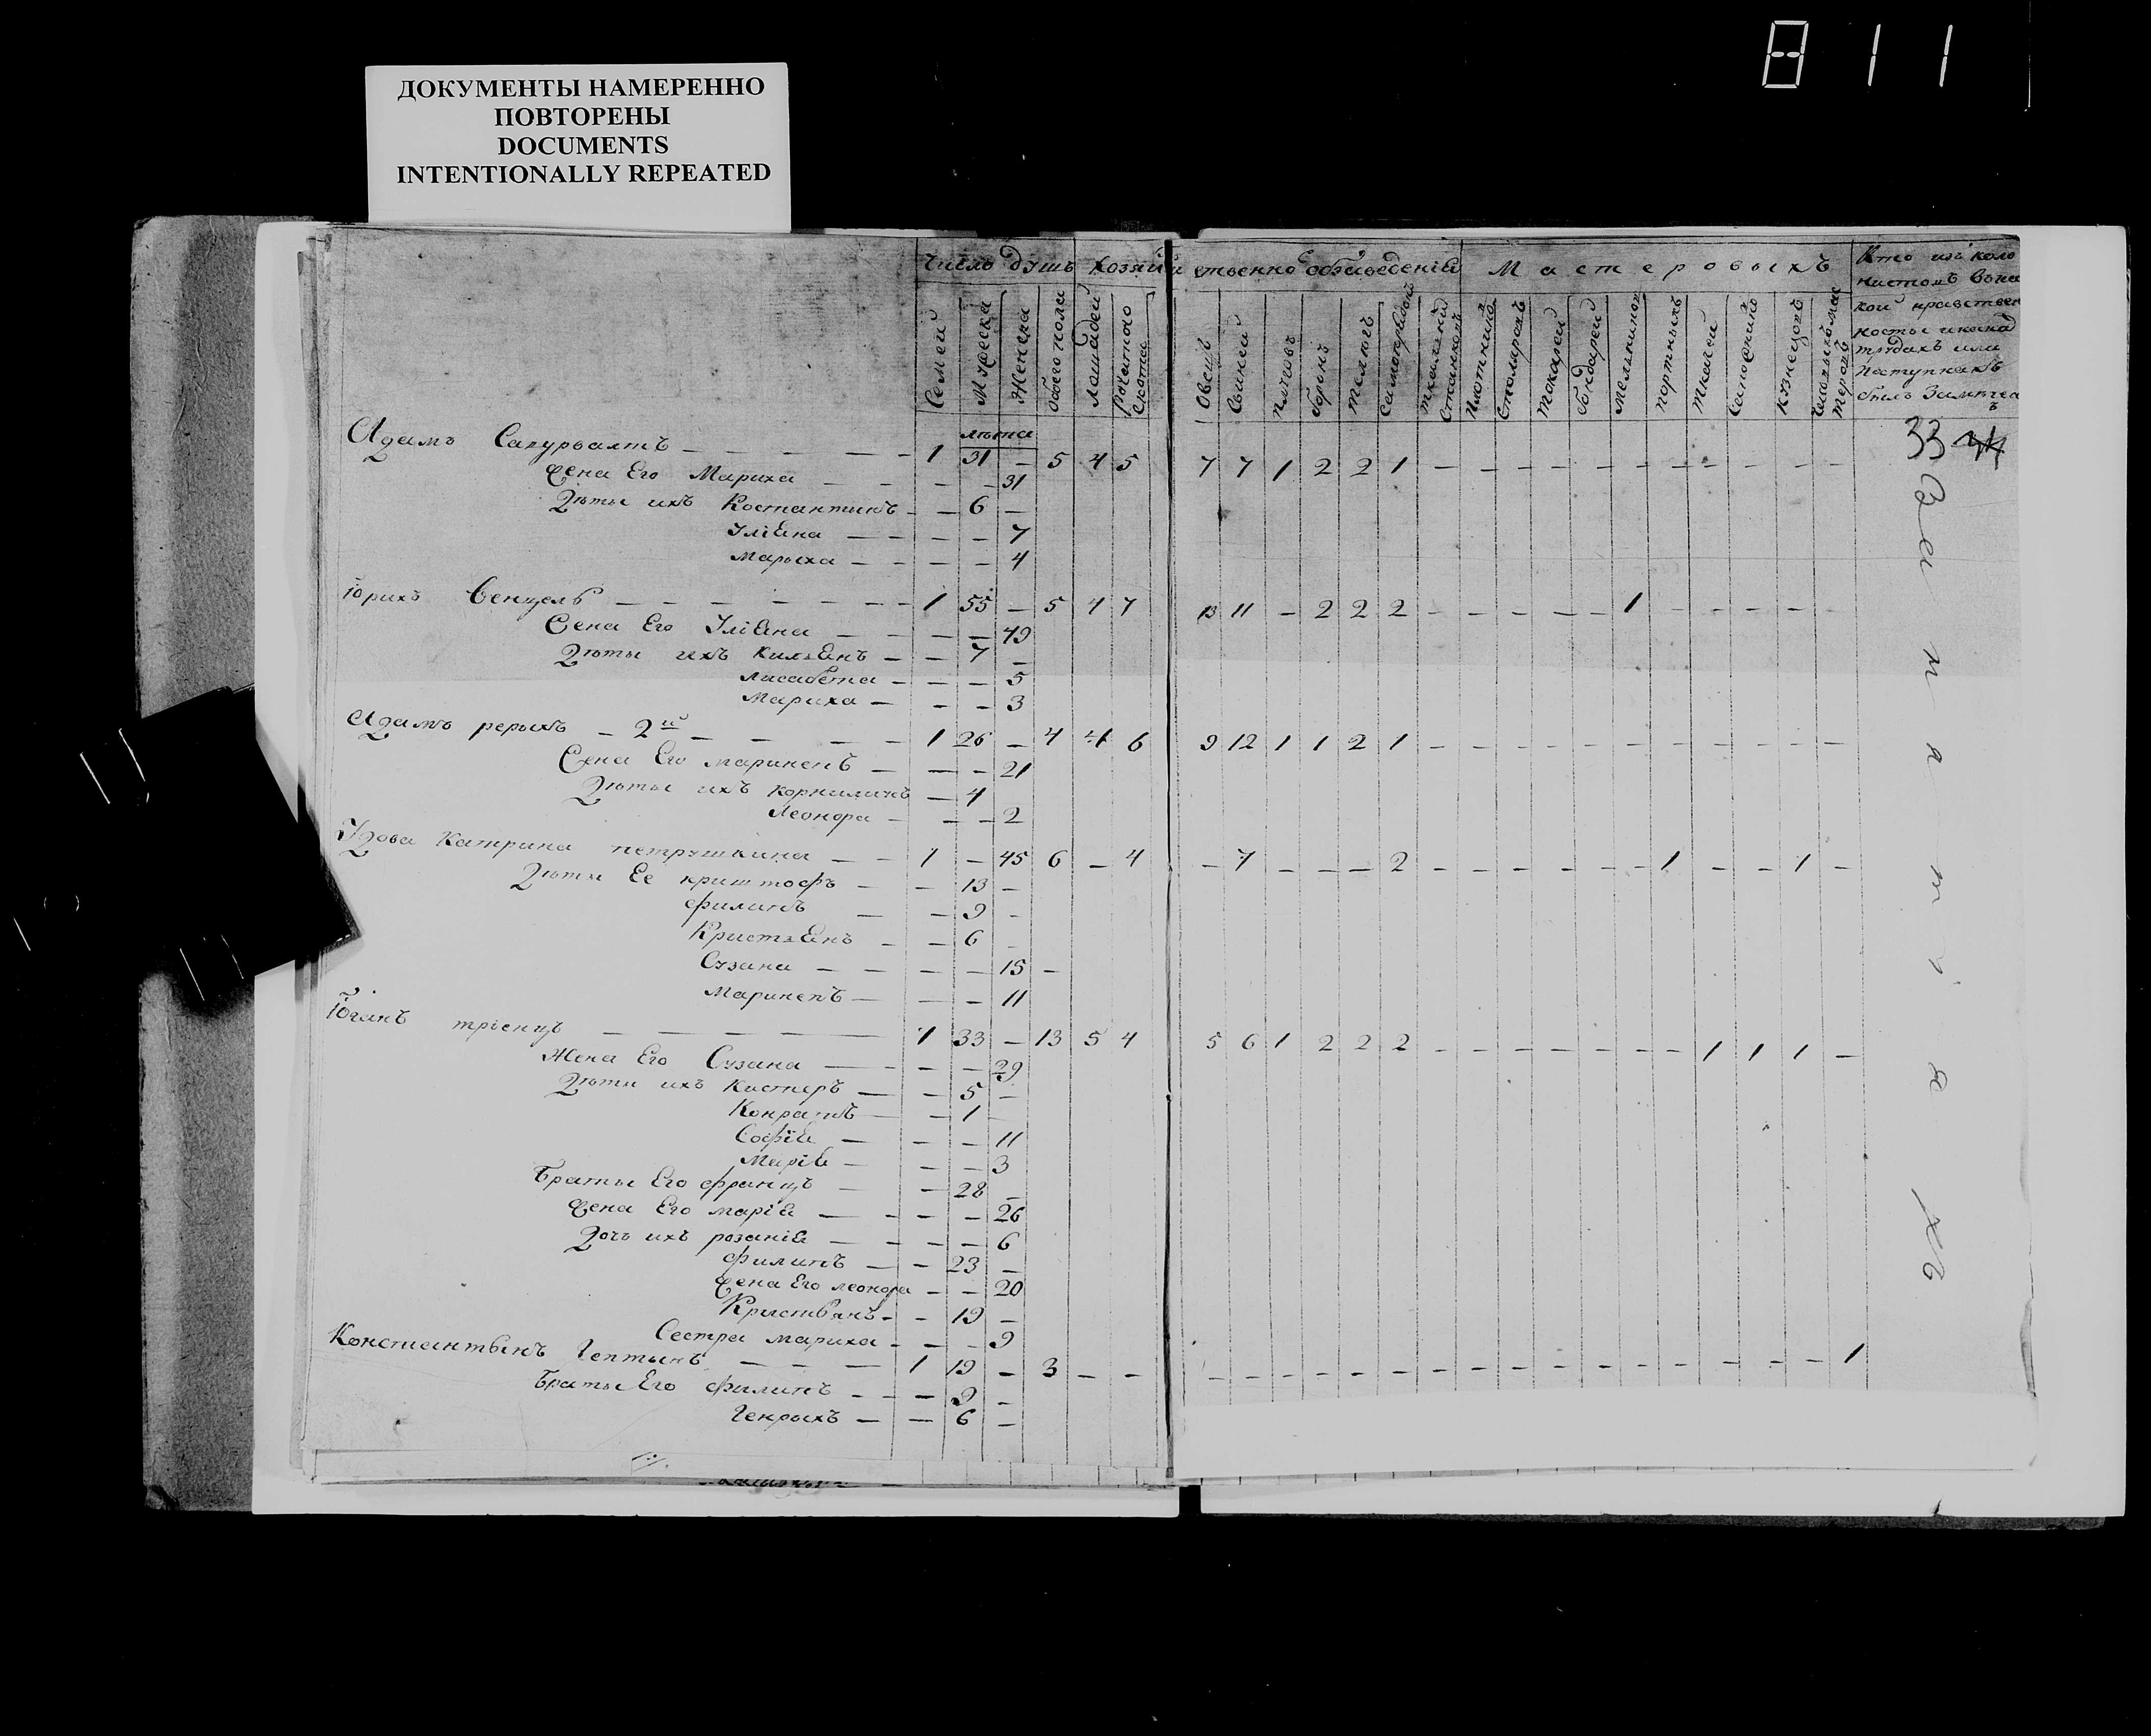 811
ДОКУМЕНТЫ НАМЕРЕННО
ПОВТОРЕНЫ
DOCUMENTS
INTENTIONALLY REPEATED
Число душъ Хозяйственно обзаведенiй Мастеровыхъ Кто изъ коло
нистовъ въ ка
кой нравствен
ности и въ
трудахъ или
поступкахъ
былъ Замѣчен
ъ
Семей Мужеска Женска Обоего пола Лошадей рогатаго скота Овецъ Свиней плуговъ боронъ телегъ Самопрялокъ ткальныхъ станковъ плотниковъ Столяровъ токарей бондарей мельниковъ портныхъ ткачей Сапожник кузнецовъ
лѣта
33
Адамъ — 1 31 — 5 4 5 7 7 1 2 2 1 — — — — — — — — — — —
Жена Его Мариха — — — 31
Дѣти ихъ Костантинъ — — 6 —
Улiяна — — — — 7
Марыха — — — — 4
Юрихъ Венцель — 1 55 — 5 4 7 13 11 — 2 2 2 — — — — — 1 — — — — —
Жена Его Улiяна — — — 49
Дѣти ихъ Килiянъ — — 7 —
Лисабета — — — 5
Мариха — — — 3
Адамъ рерихъ — 2й — 1 26 — 4 4 6 9 12 1 1 2 1 — — — — — — — — — — —
Жена Его марикенъ — — — 21
Дѣти ихъ корнилиусъ — 4
Леонора — — — 2
Удова Катрина петрушкина — — 1 — 45 6 — 4 — 7 — — — 2 — — — — — — 1 — — 1 —
Дѣти Ее криштофъ — — 13 —
филипъ — — 9 —
Кристiянъ — — 6 —
Сузана — — — — 15 —
Марикепъ — — — 11
Юганъ трiенцъ — 1 33 — 13 5 4 5 6 1 2 2 2 — — — — — — — 1 1 1 —
Жена Его Сузана — — — 29
Дѣти ихъ Кастперъ — — 5 —
Конратъ — — 1 —
Софiя — — — 11
Марiя — — — 3
Браты Его францъ — — 28 —
Жена Его марiя — — — — 26
Дочь ихъ розанiя — — — — 6
Филипъ — — 23 —
Жена Его леонора — — 20
Кристьянъ — — 19 —
Сестра мариха — — — 9
Константынъ Гептынъ — — — 1 19 — 3 — — — — — — — — — — — — — — — — — — 1
Браты Его филипъ — — — 9 —
Генрыхъ — — 6 —